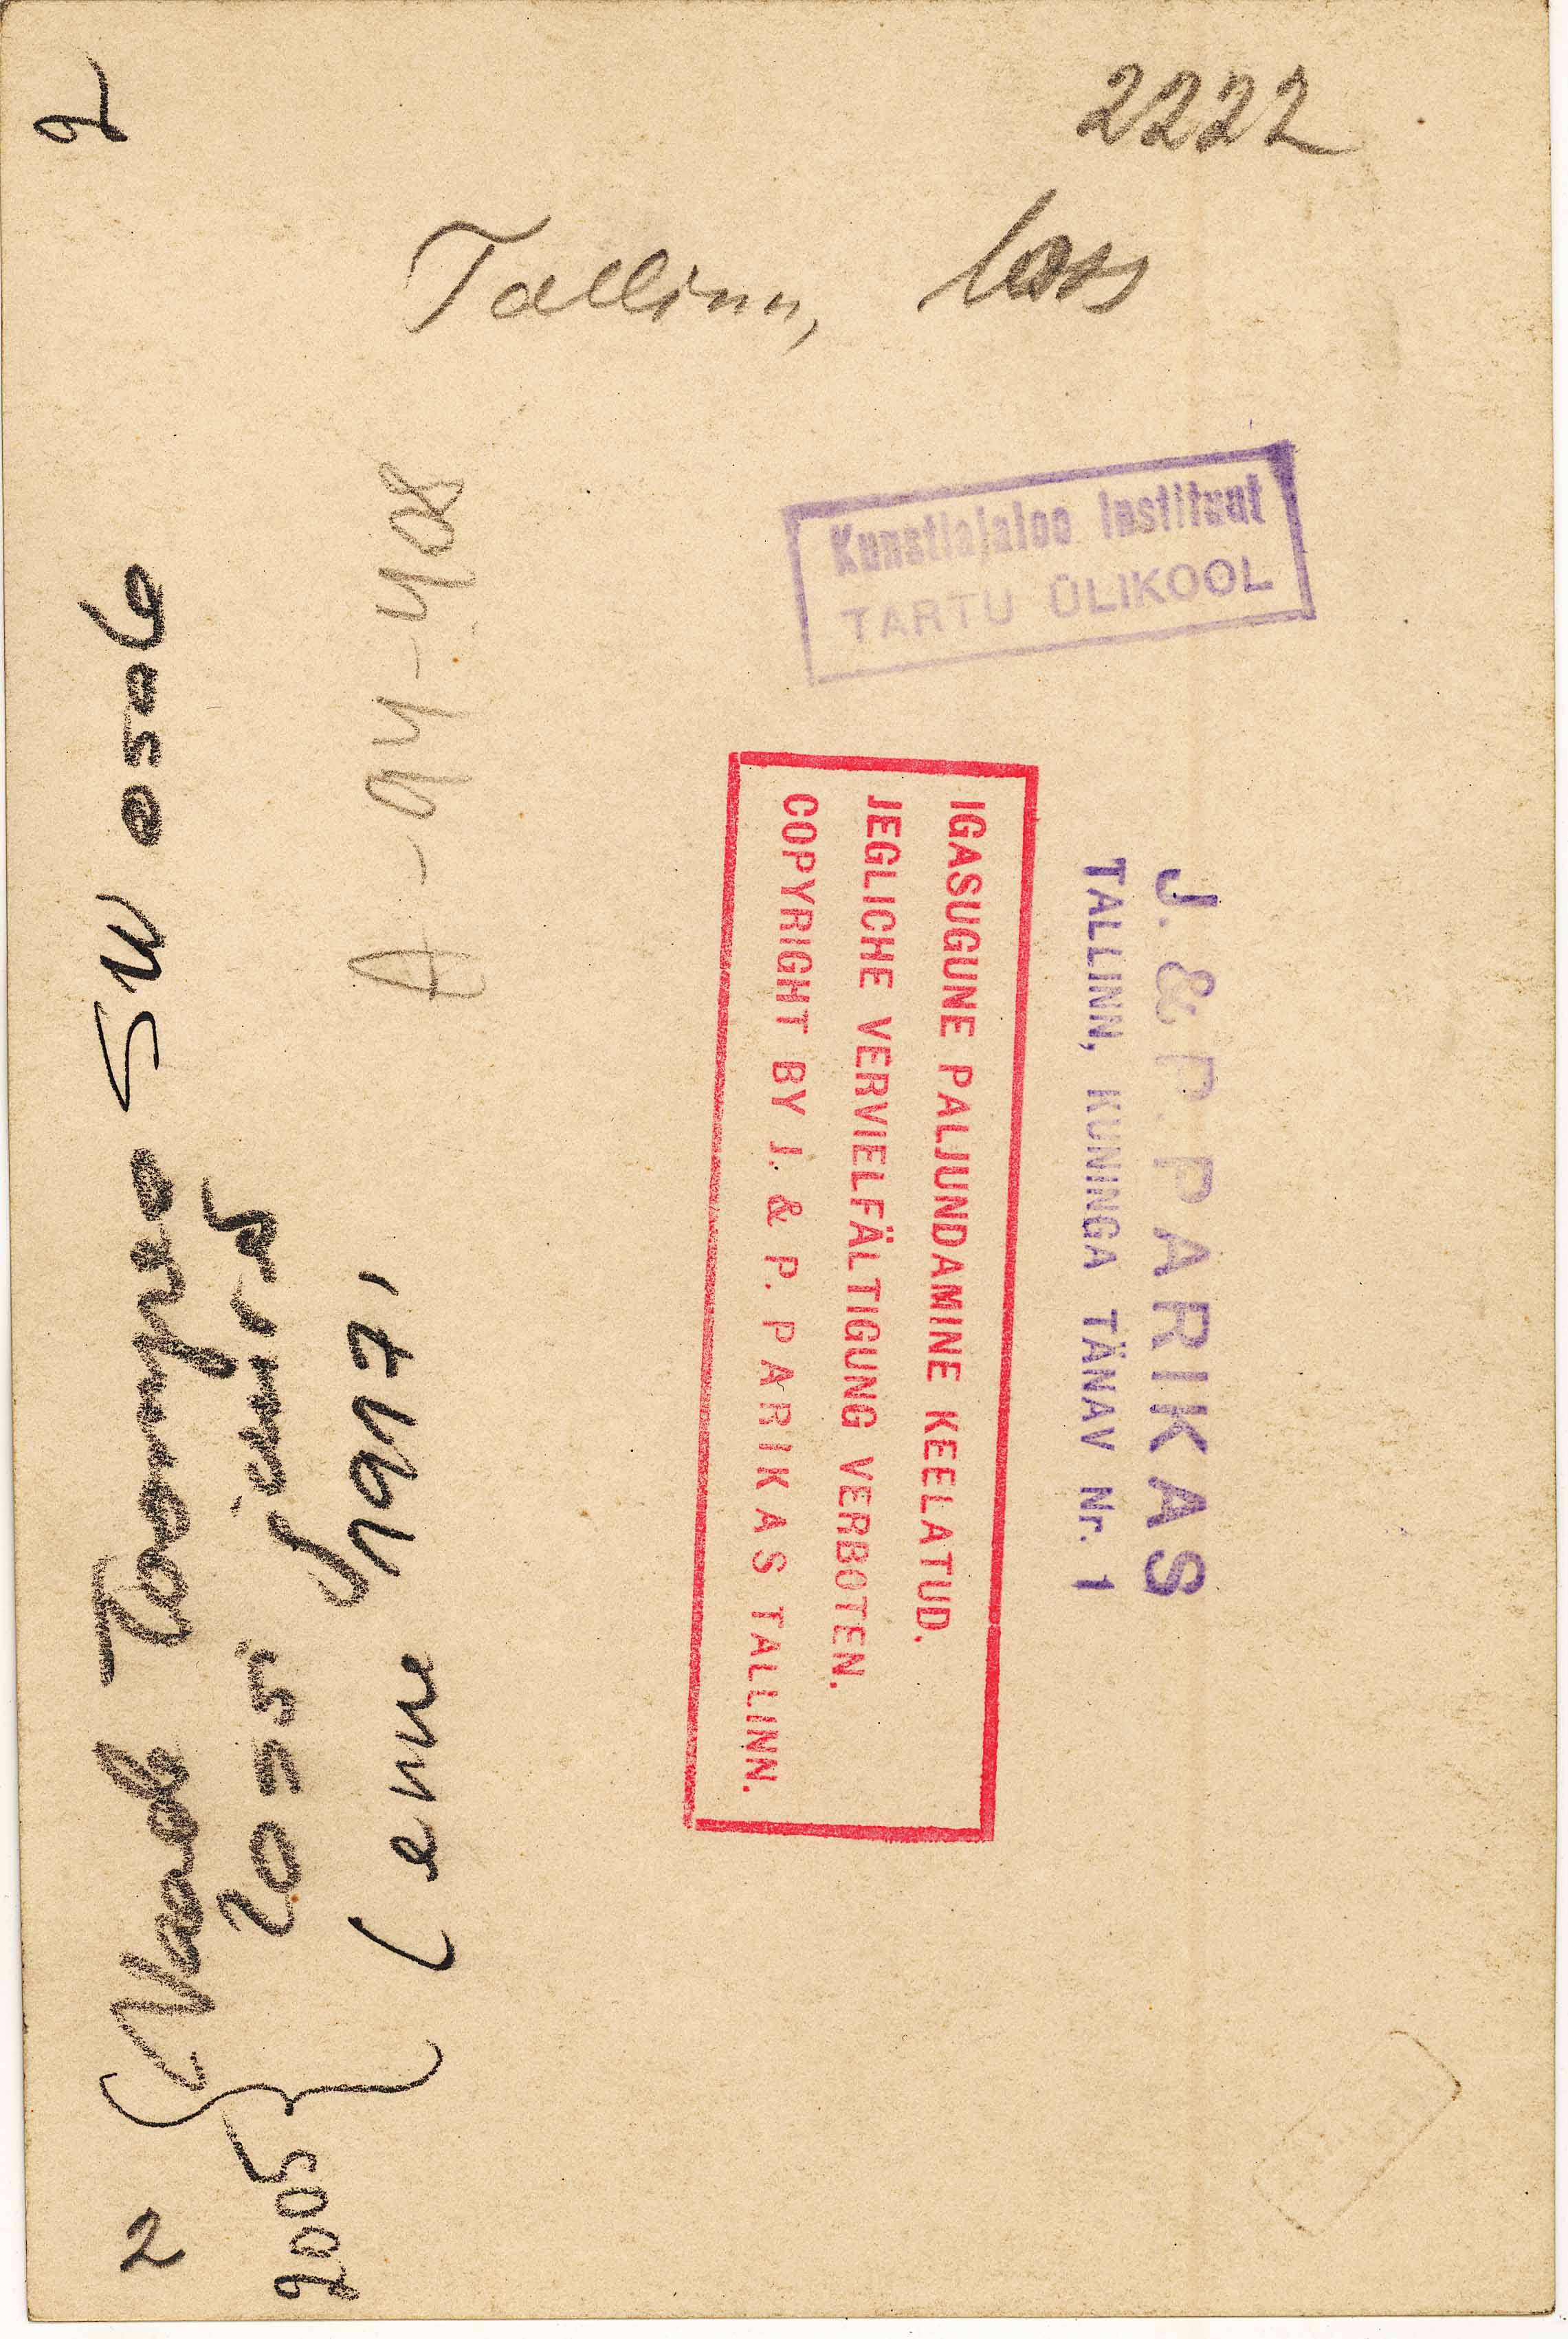 2222
Tallinn, loss
Kunstiajaloo Instituut
TARTU ÜLIKOOL
J. & P. PARIKAS
TALLINN, KUNINGA TÄNAV Nr. 1
IGASUGUNE PALJUNDAMINE KEELATUD.
JEGLICHE VERVIELFÄLTIGUNG VERBOTEN.
COPYRIGHT BY J. & P. PARIKAS TALLINN.
A-94-408
2
2
Vaade Toompea SW osale
(enne 1917,
2005